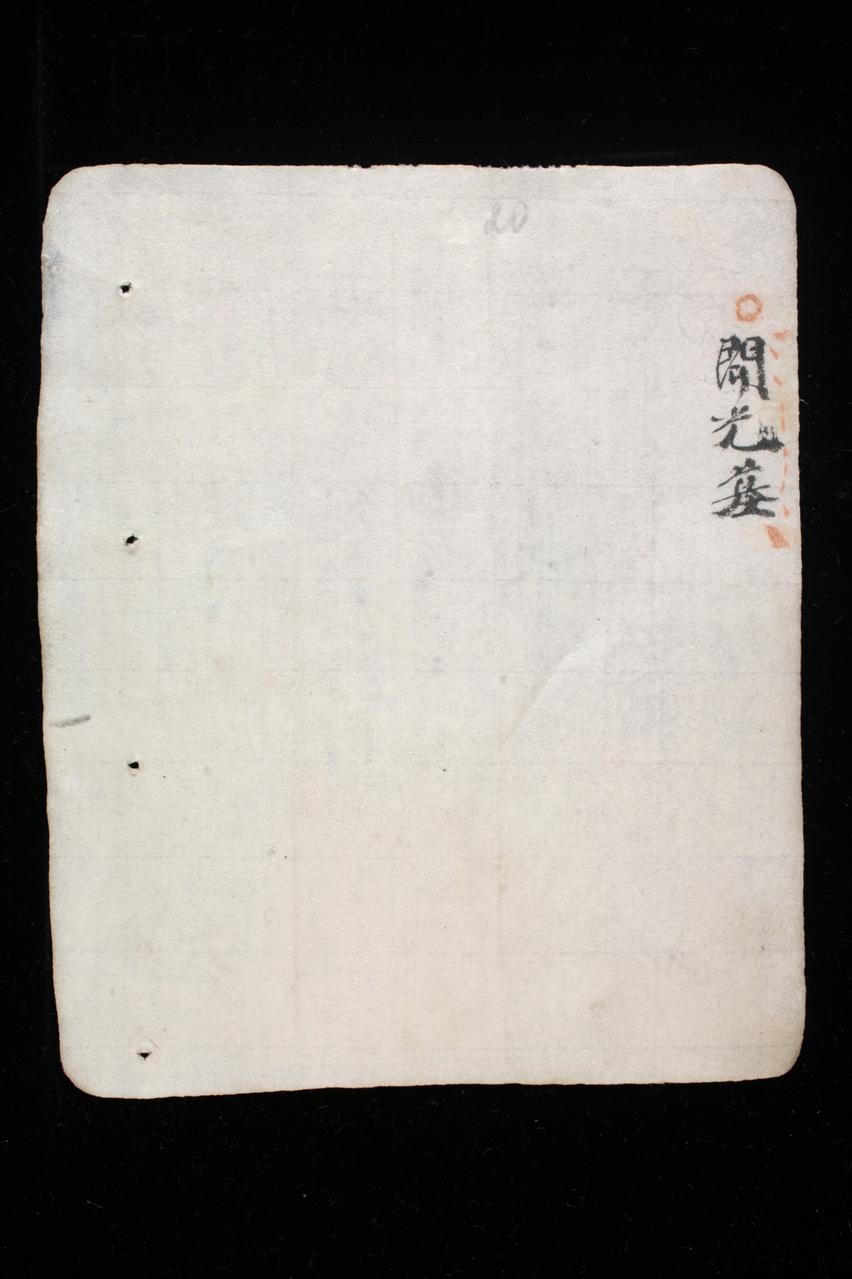 20
開光